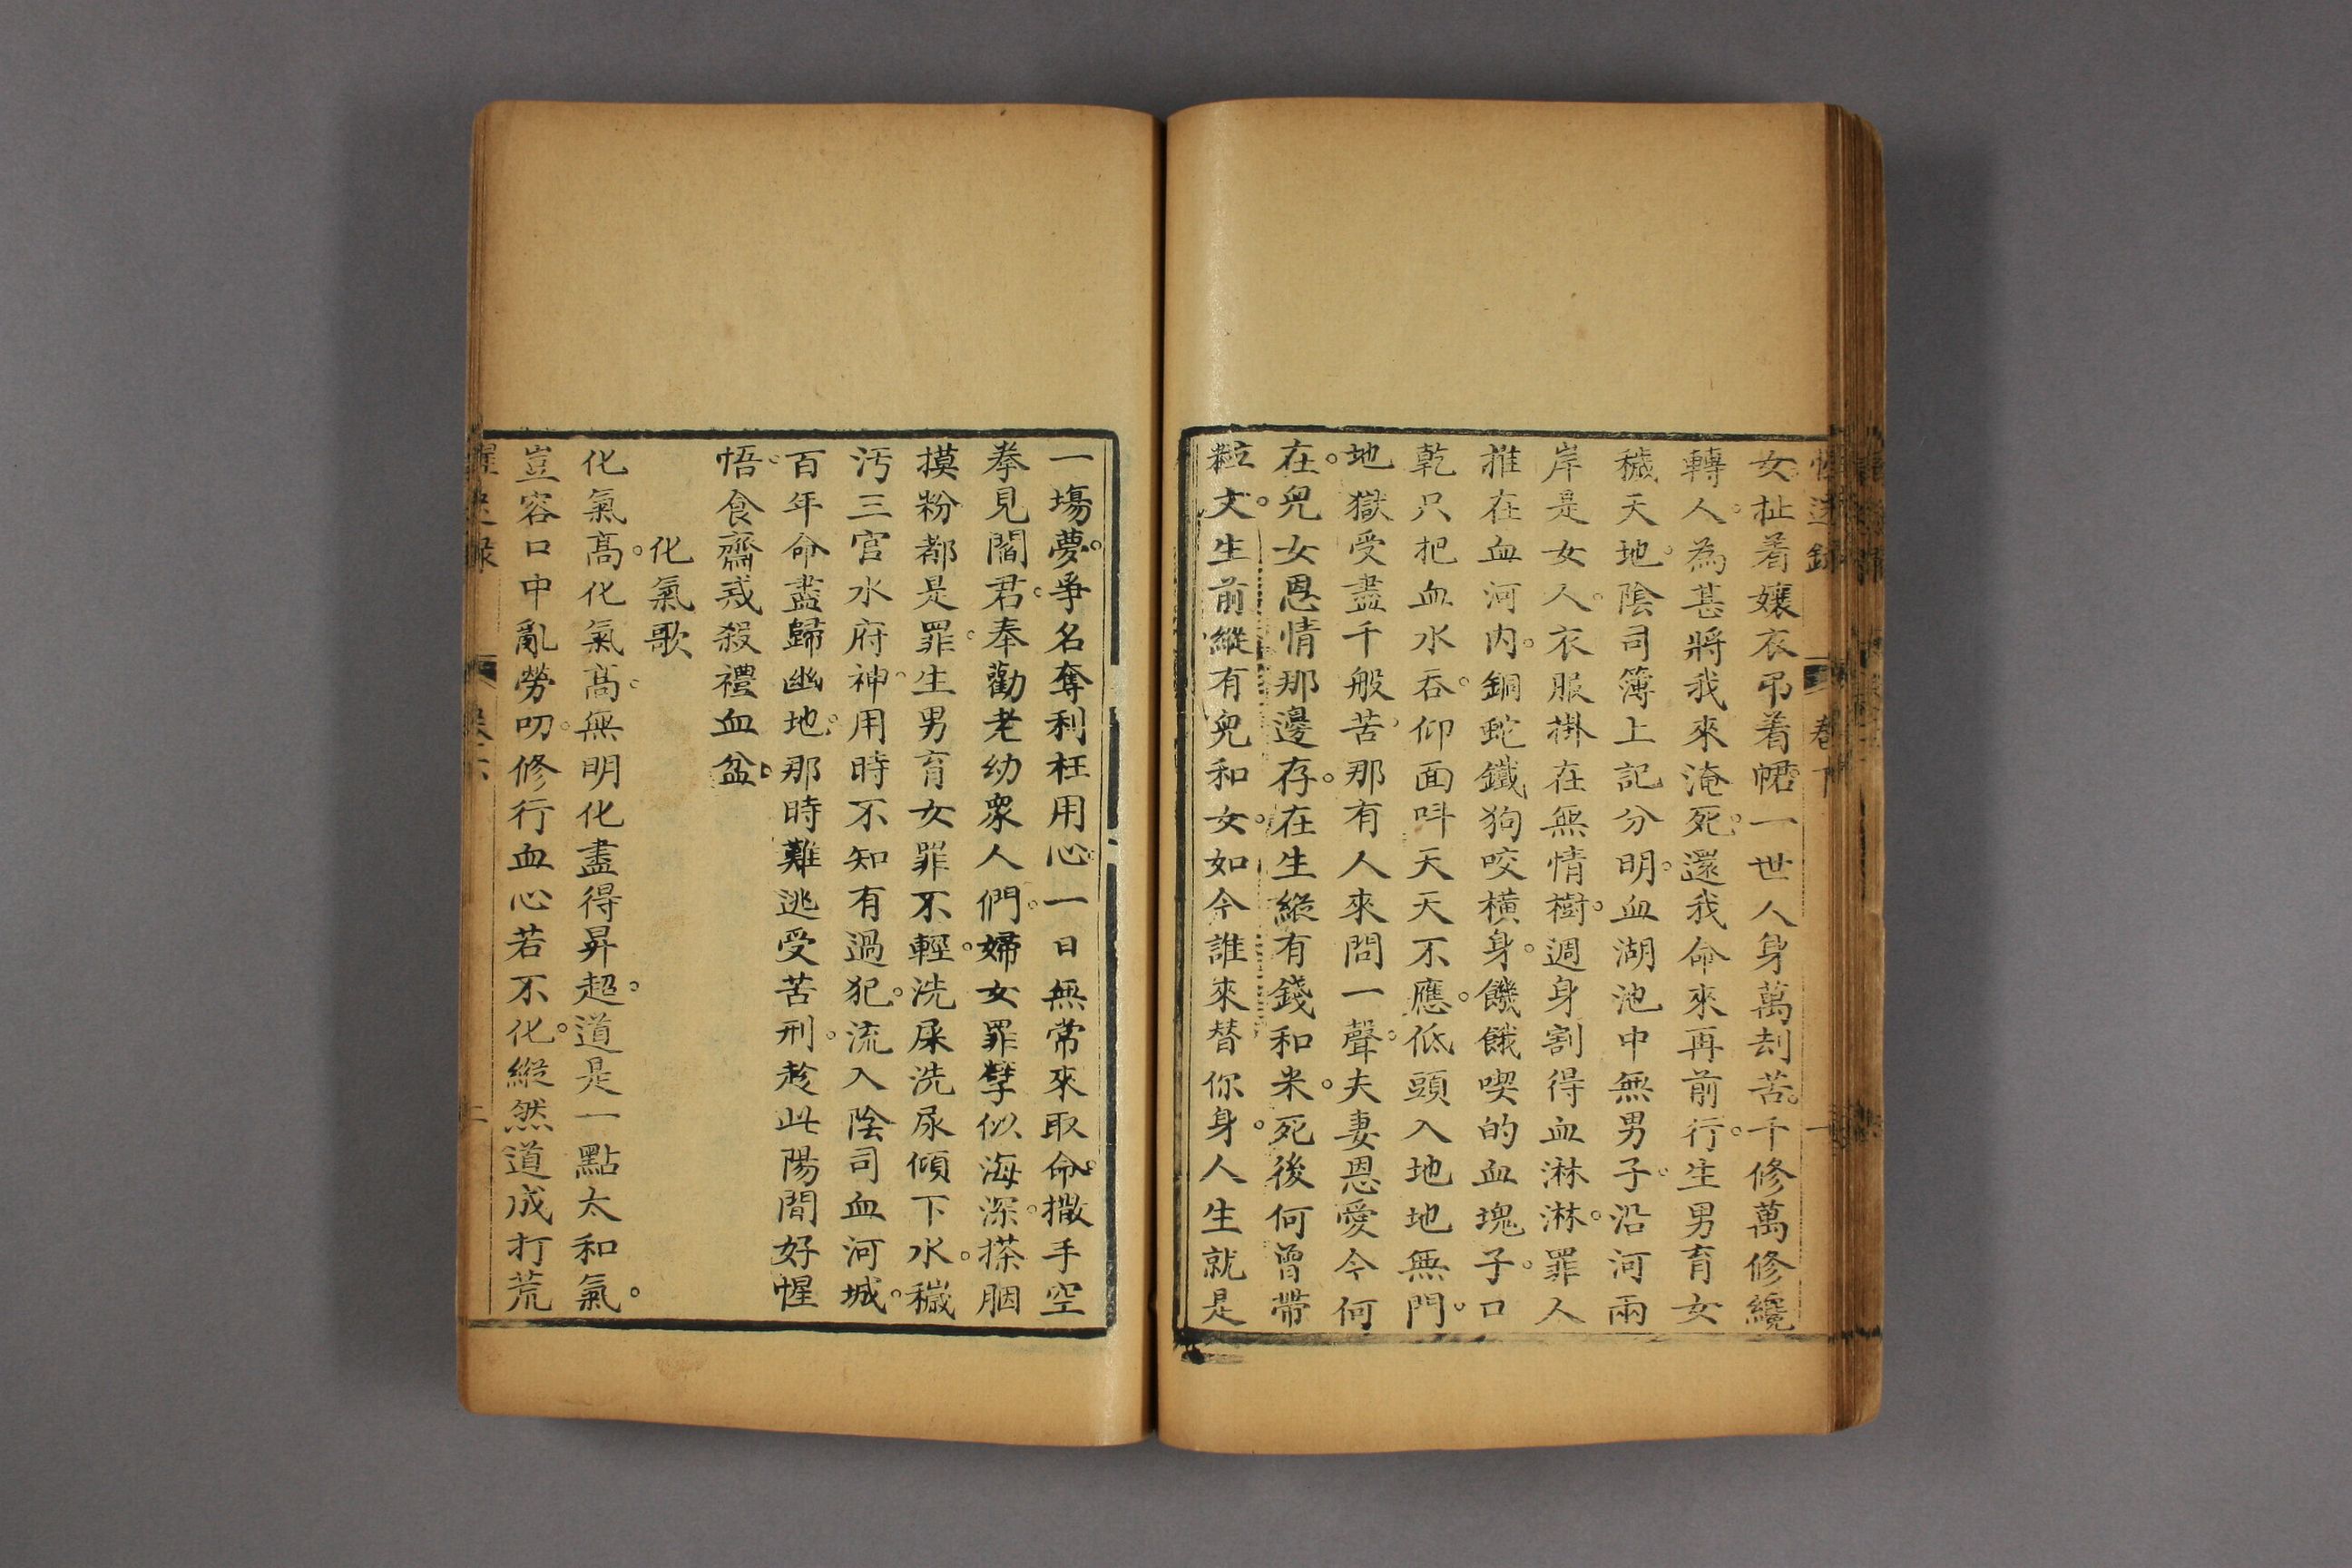 惺迷錄 卷下 一
女扯着孃衣弔着帬一世人身萬刦苦。千修萬修纔
轉人。為甚將我來淹死。還我命來再前行。生男育女
穢天地。陰司簿上記分明。血湖池中無男子。沿河兩
岸是女人。衣服掛在無情樹。週身割得血淋淋。罪人
推在血河內。銅蛇鐵狗咬橫身。饑餓喫的血塊子。口
乾只把血水吞。仰面呌天天不應。低頭入地地無門。
地獄受盡千般苦。那有人來問一聲。夫妻恩愛今何
在。兒女恩情那邊存。在生縱有錢和米。死後何曾帶
粒文。生前縱有兒和女。如今誰來替你身。人生就是
一塲夢。爭名奪利枉用心。一日無常來取命。撒手空
拳見閻君。奉勸老幼衆人們。婦女罪孽似海深。搽胭
摸粉都是罪。生男育女罪不輕。洗屎洗尿傾下水。穢
汚三官水府神。用時不知有過犯。流入陰司血河城。
百年命盡歸幽地。那時難逃受苦刑。趁此陽間好惺
悟。食齋戒殺禮血盆。
化氣歌
化氣高。化氣高。無明化盡得昇超。道是一點太和氣。
豈容口中亂勞叨。修行血心若不化。縱然道成打荒